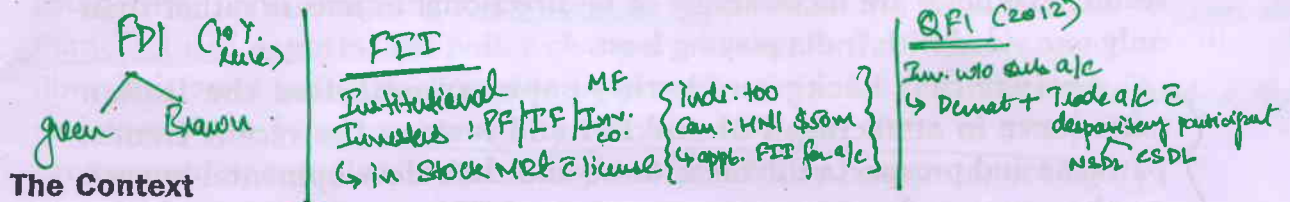 FDI (10% rule)
green Brown
FII
Institutional
Investors : PF/IF/Inv. CO MF
↳ in Stock MRt c̄ license
{ indi. too
can : HNI $50m
↳ appt. FII for a/c }
QFI (2012)
Inv. w/o sub a/c
↳ Demat + Trade a/c c̄
depository participant
NSDL CSDL
The Context